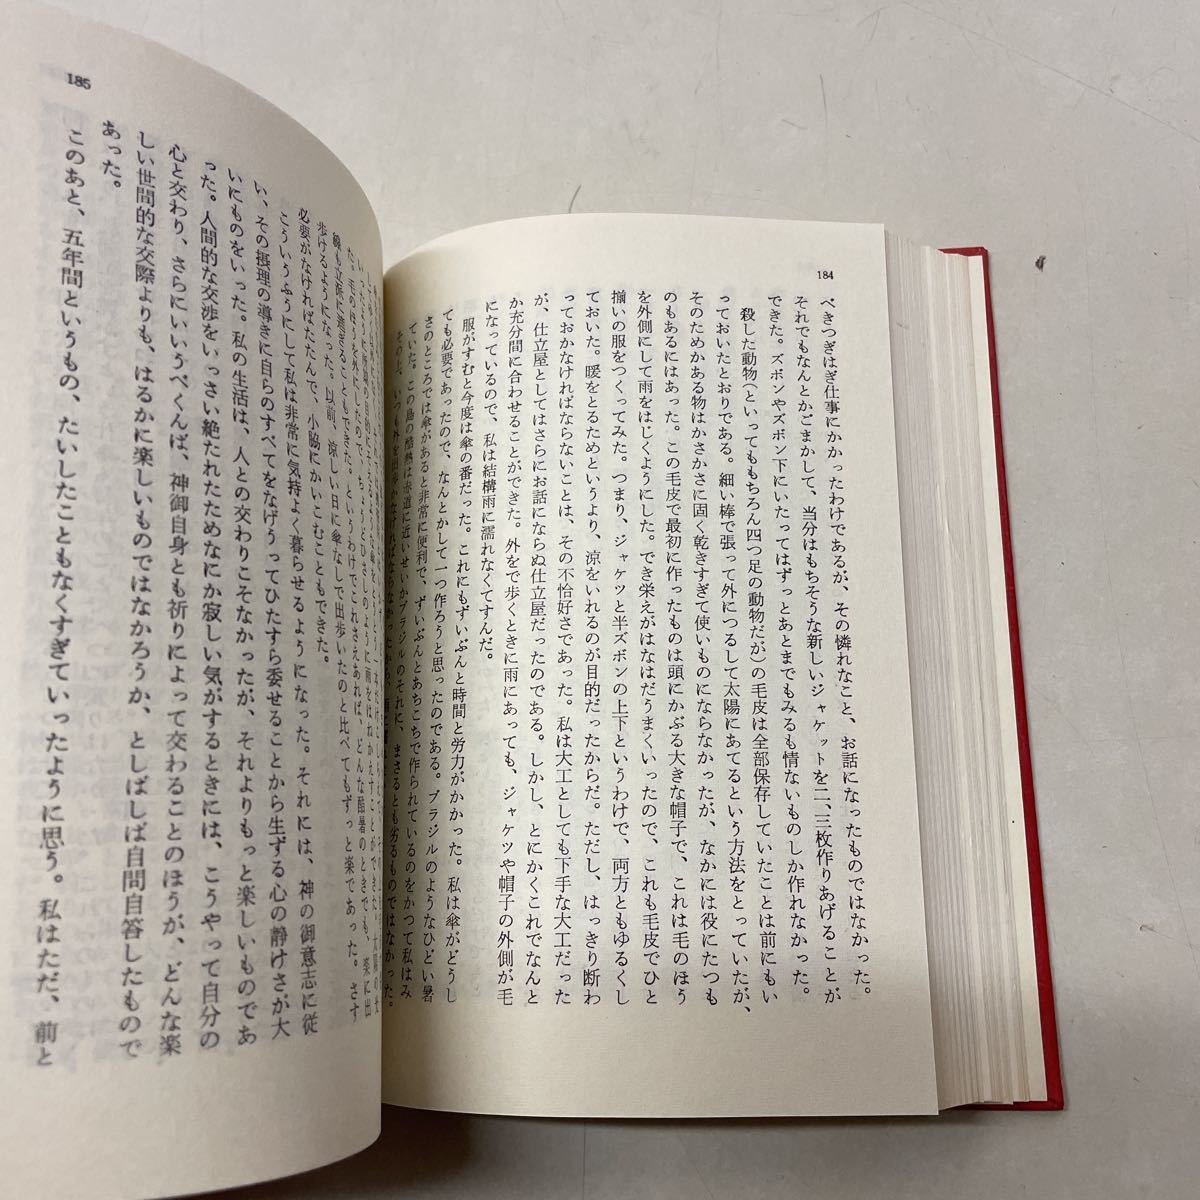 184
べきつぎはぎ仕事にかかったわけであるが、その憐れなこと、お話になったものではなかった。
それでもなんとかごまかして、当分はもちそうな新しいジャケットを二、三枚作りあげることが
できた。ズボンやズボン下にいたってはずっとあとまでもみるも情ないものしか作れなかった。
殺した動物(といってももちろん四つ足の動物だが)の毛皮は全部保存していたことは前にもい
っておいたとおりである。細い棒で張って外につるして太陽にあてるという方法をとっていたが、
そのためかある物はかさかさに固く乾きすぎて使いものにならなかったが、なかには役にたつも
のもあるにはあった。この毛皮で最初に作ったものは頭にかぶる大きな帽子で、これは毛のほう
を外側にして雨をはじくようにした。でき栄えがはなはだうまくいったので、これも毛皮でひと
揃いの服をつくってみた。つまり、ジャケツと半ズボンの上下というわけで、両方ともゆるくし
ておいた。暖をとるためというより、涼をいれるのが目的だったからだ。ただし、はっきり断わ
っておかなければならないことは、その不恰好さであった。私は大工としても下手な大工だった
が、仕立屋としてはさらにお話にならぬ仕立屋だったのである。しかし、とにかくこれでなんと
か充分間に合わせることができた。外をで歩くときに雨にあっても、ジャケツや帽子の外側が毛
になっているので、私は結構雨に濡れなくてすんだ。
服がすむと今度は傘の番だった。これにもずいぶんと時間と労力がかかった。私は傘がどうし
ても必要であったので、なんとかして一つ作ろうと思ったのである。ブラジルのようなひどい暑
さのところでは傘があると非常に便利で、ずいぶんとあちこちで作られているのをかつて私はみ
ていた。この島の酷熱は赤道に近いせいかブラジルのそれに、まさるとも劣るものではなかった。
185
縁も立派に過ぎることもできた。というわけでこれさえあれば、どんな酷暑のときでも、楽に出
歩けるようになった。以前、涼しい日に傘なしで出歩いたのと比べてもずっと楽であった。さす
必要がなければたたんで、小脇にかいこむこともできた。
こういうふうにして私は非常に気持よく暮らせるようになった。それには、神の御意志に従
い、その摂理の導きに自らのすべてをなげうってひたすら委せることから生ずる心の静けさが大
いにものをいった。私の生活は、人との交わりこそなかったが、それよりもっと楽しいものであ
った。人間的な交渉をいっさい絶たれたためなにか寂しい気がするときには、こうやって自分の
心と交わり、さらにいいうべくんば、神御自身とも祈りによって交わることのほうが、どんな楽
しい世間的な交際よりも、はるかに楽しいものではなかろうか、としばしば自問自答したもので
あった。
このあと、五年間というもの、たいしたこともなくすぎていったように思う。私はただ、前と